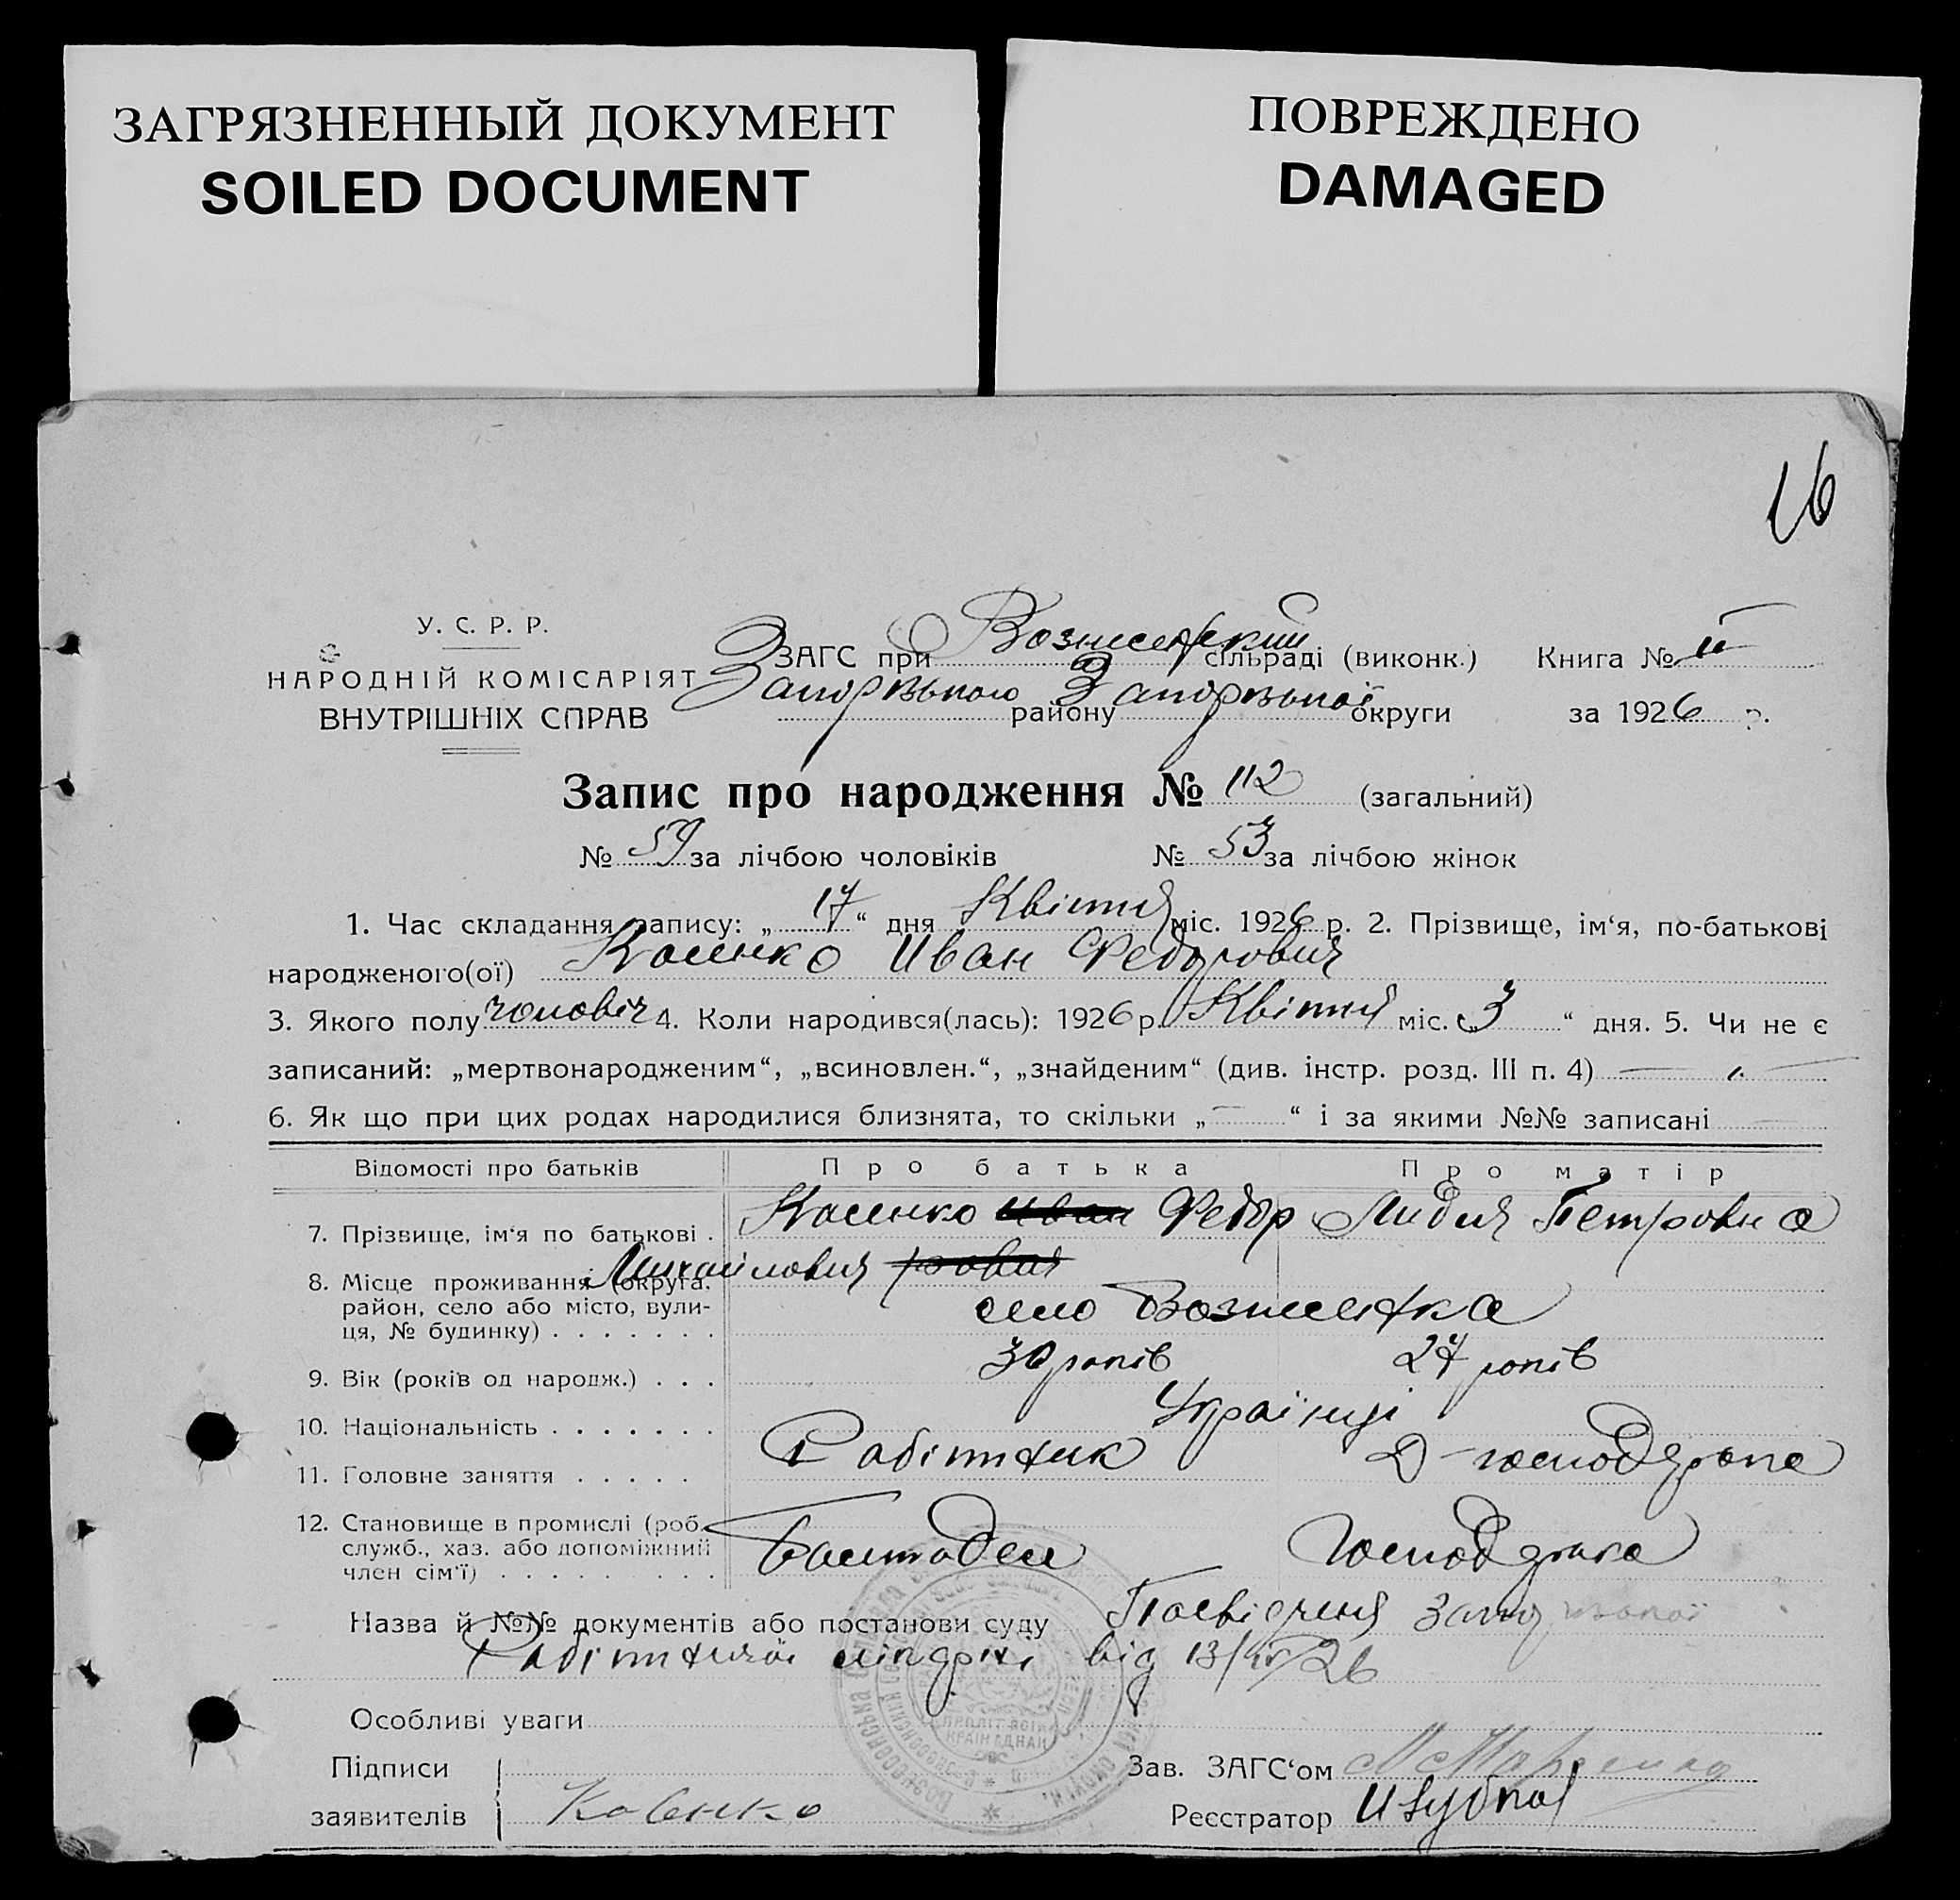 ЗАГРЯЗНЕННЫЙ ДОКУМЕНТ
SOILED DOCUMENT
ПОВРЕЖДЕНО
DAMAGED
16
У. С. Р. Р.
НАРОДНІЙ КОМІСАРІЯТ
ВНУТРІШНІХ СПРАВ
ЗАГС при сільраді (виконк.) Книга №
району округи за 1926 р.
Запис про народження № 112 (загальний)
№ 59 за лічбою чоловіків № 53 за лічбою жінок
1. Час складання запису: „17“ дня Квітня міс. 1926 р. 2. Прізвище, ім‘я, по-батькові
народженого(ої) Косенко Иван Федорович
3. Якого полу чоловіч 4. Коли народився(лась): 1926 р. Квітня міс. „3“ дня. 5. Чи не є
записаний: „мертвонародженим“, „всиновлен.“, „знайденим“ (див. інстр. розд. III п. 4) —
6. Як що при цих родах народилися близнята, то скільки „—“ і за якими №№ записані —
Відомості про батьків Про батька Про матір
7. Прізвище, ім‘я по батькові . Косенко Иван Федор Лидия Петровна
Михайлович
8. Місце проживання (округа,
район, село або місто, вули-
ця, № будинку) . . . . . . . село Вознесенка
9. Вік (років од народж.) . . . 30 років 27 років
10. Національність . . . . . . . Українці
11. Головне заняття . . . . . Робітник
12. Становище в промислі (роб.,
служб., хаз. або допоміжний
член сім‘ї) . . . . . . . . .
Назва й №№ документів або постанови суду
від 13/IV 26
Особливі уваги
Підписи
заявителів Косенко
Зав. ЗАГС‘ом
Реєстратор